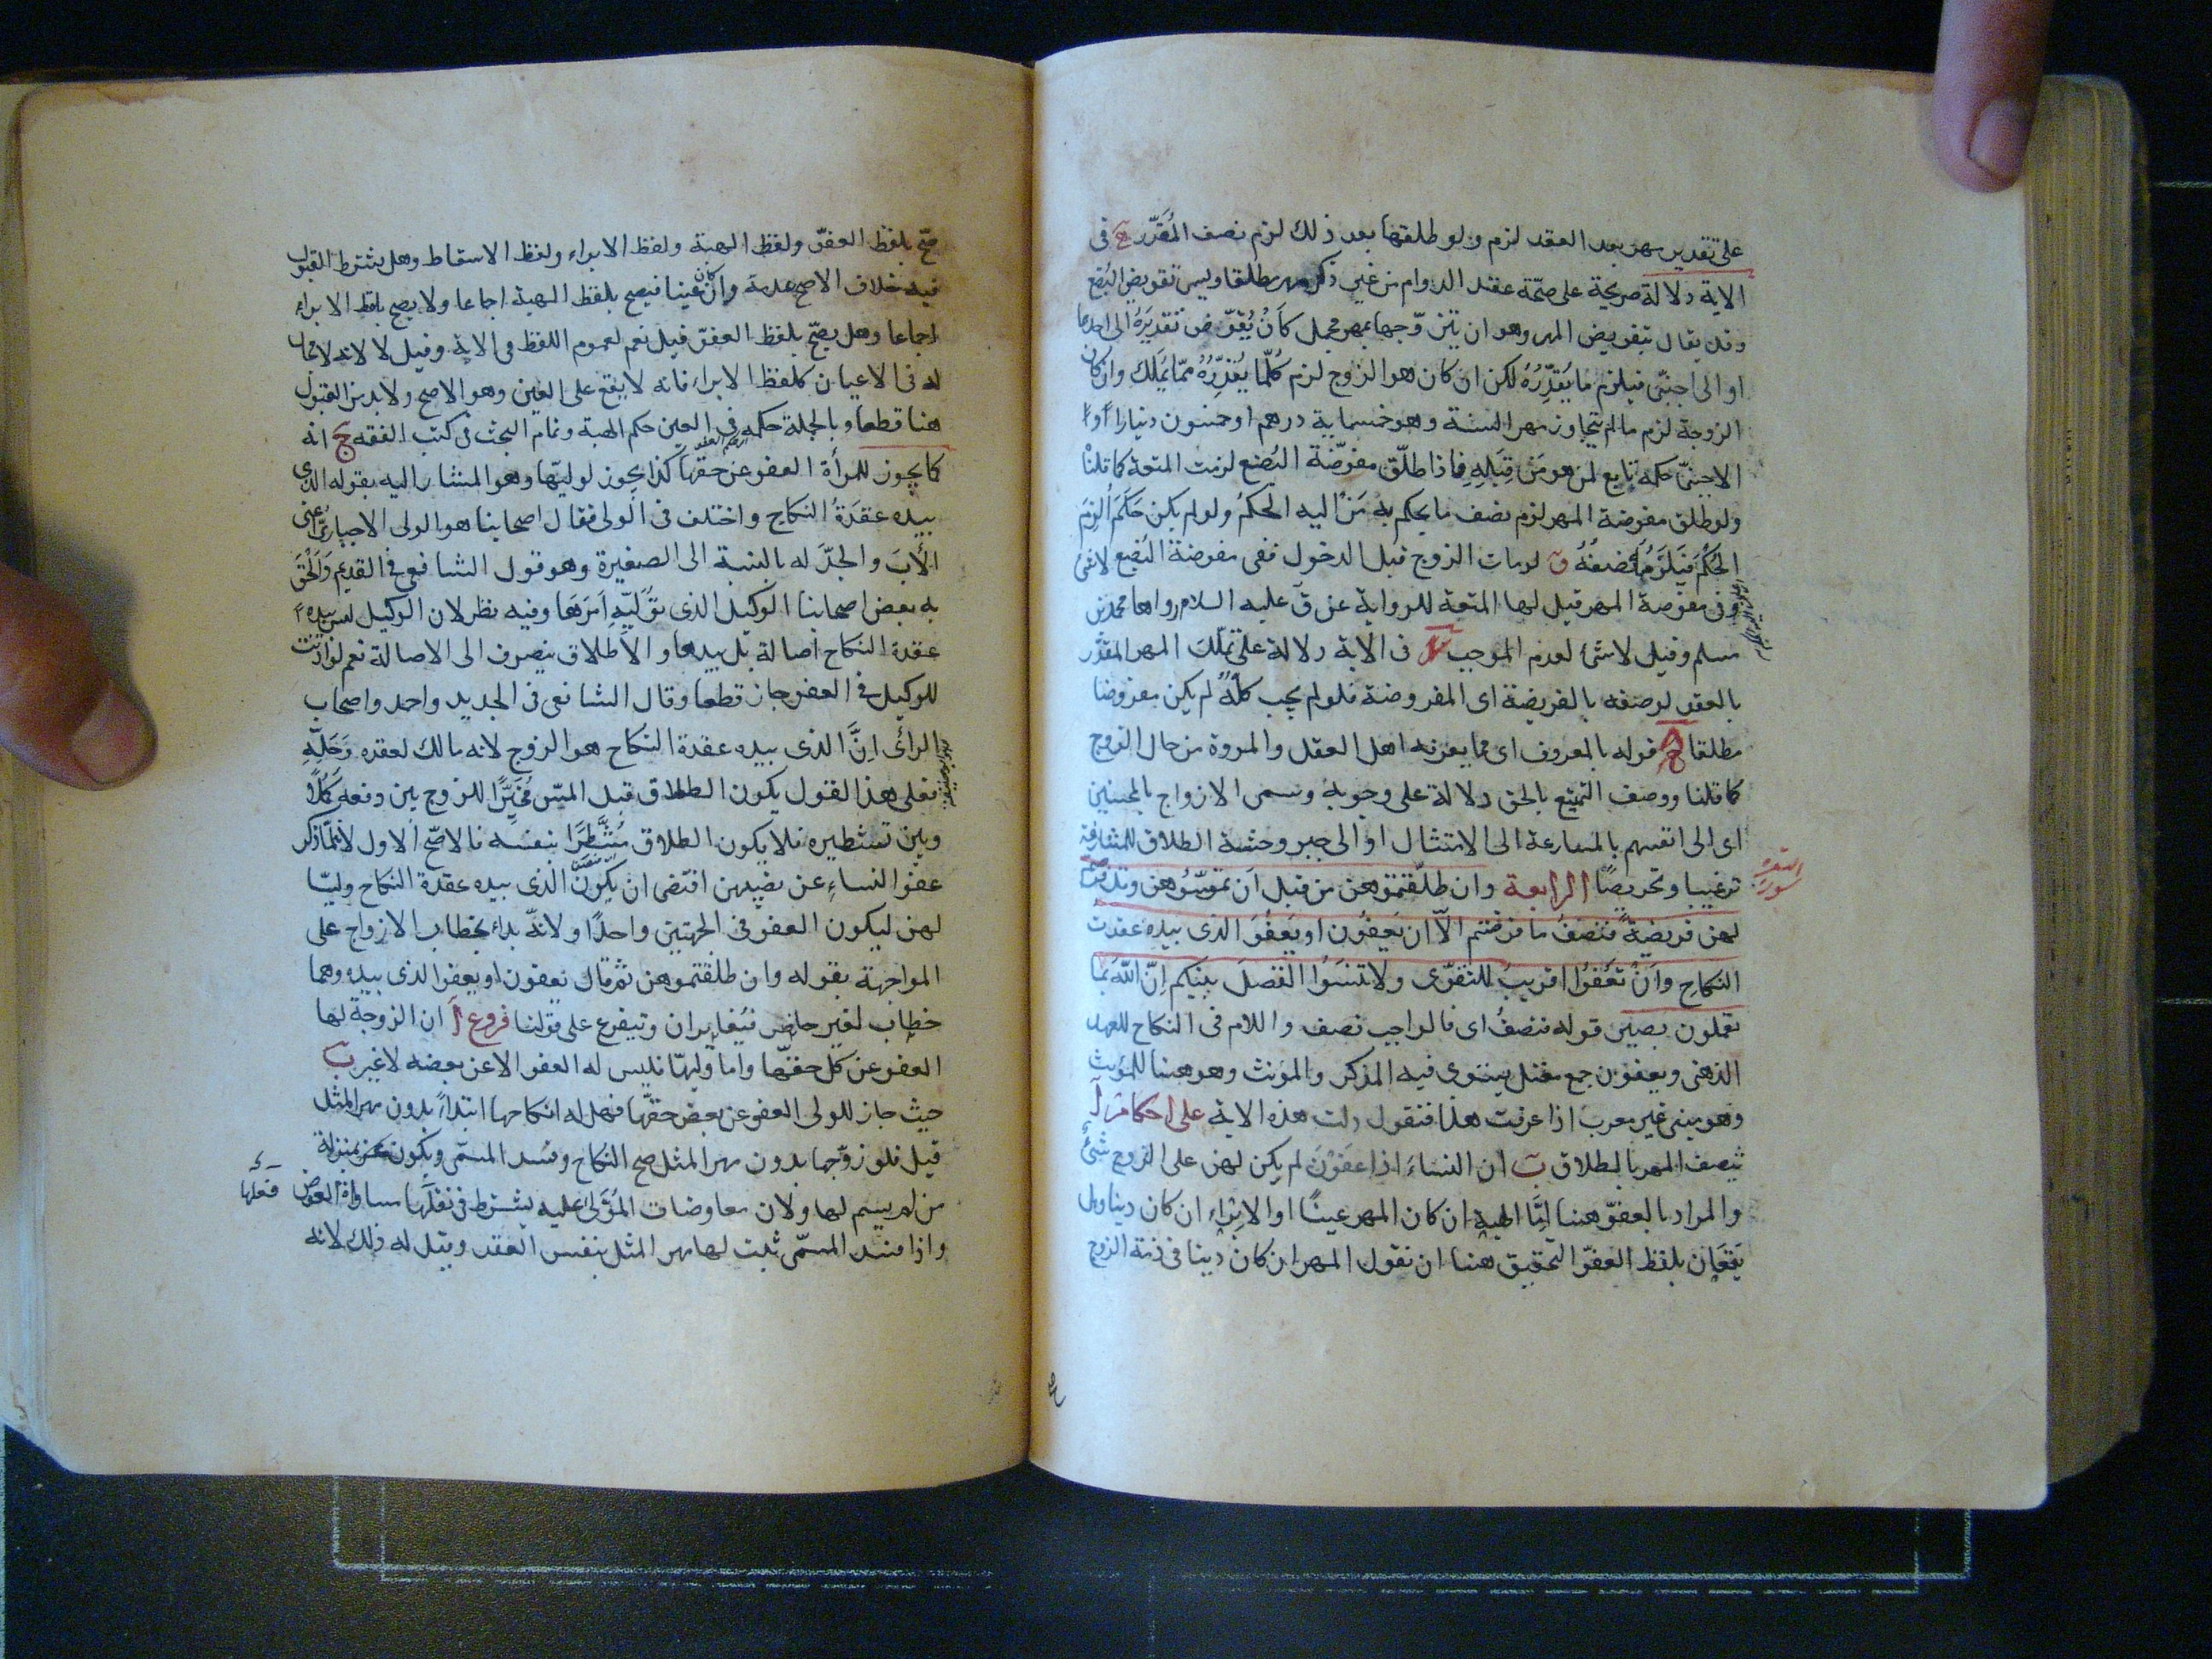 على تقدير مهر بعد العقد لزم ولو طلقها بعد ذلك لزم نصف المُقَدَّر ج فى
الاية دلالة صريحة على صحّة عقد الدوام من غير ذكر مهر مطلقا ويسمى تفويض البُضع
وقد يقال بتفويض المهر وهو ان يتزوّجها بمهر مجمل كأن يُفَوّض تقديرَهُ الى احدهما
او الى اجنبّى فيلزم ما يُقَدِّرُهُ لكن ان كان هو الزوج لزم كُلّما يُقَدِّرُهُ ممّا يُمَلك وان كان
الزوجة لزم ما لم يتجاوز مهر السنة وهو خمسماية درهم او خمسون دينارا او
الاجنبىّ حكمه تابع لمن هو مَن قِبَلِهِ فاذا طلّق مفوّضة البُضع لزمت المتعة كما قلنا
ولو طلق مفوضة المهر لزم نصف ما يحكم به مَن اليه الحكمُ ولو لم يكن حَكَمَ أُلزِمَ
الحُكمَ فيَلزَمُ نصفُهُ لو مات الزوج قبل الدخول ففى مفوضة البُضع لاشئ
وفى مفوضة المهر قيل لها المتعة للرواية عن ق عليه السلام رواها محمد بن
مسلم وقيل لاشئ لعدم الموجب فى الاية دلالة على تملّك المهر المقدّر
بالعقد لوصفه بالفريضة اى المفروضة فلو لم يجب كلّهُ لم يكن مفروضا
مطلقا قوله بالمعروف اى مما يعرفه اهل العقل والمروة من حال الزوج
كما قلنا ووصف التمتيع بالحق دلالة على وجوبه وسمى الازواج بالمحسنين
اى الى انفسهم بالمسارعة الى الامتثال او الى جبر وحشة الطلاق للمشارفة
ترغيبا وتحريصًا الرابعة وان طلّقتموهن من قبل اَن تمسّوُهن وقد فرضتم
لهن فريضةً فنصفُ ما فرضتم الّا ان يَعفُون او يَعفُوَ الذى بيده عقدت
النكاحِ وَاَنْ تعْفُوُا اقربُ للتقوى ولا تنسَوُا الفضلَ بينكم اِنّ اللّهَ بما
تعملون بصير قوله فنصفُ اى فالواجب نصف واللام فى النكاح للعهد
الذهنى ويعفون جمع معتل يستوى فيه المذكر والمؤنث وهو هنا للمؤنث
وهو مبنى غير معرب اذا عرفت هذا فنقول دلت هذه الاية على احكام آ
تنصف المهر بالطلاق ب ان النساءَ اذا عفَوْنَ لم يكن لهن على الزوج شئ
والمراد بالعفوّ هنا امّا الهبة ان كان المهر عينًا او الابراء ان كان دينا وهل
يَقَعَان بلفظ العفوّ التحقيق هنا ان نقول المهر ان كان دينا فى ذمّة الزوج
سورة البقره
صّح بلفظ العفوّ ولفظ الهبة ولفظ الابراء ولفظ الاسقاط وهل يشترط القبول
فيه خلاف الاصح عدمه وان كان عَينا فيصح بلفظ الهبة اجماعا ولا يصح بلفظ الابراء
اجماعا وهل يصّح بلفظ العفوّ قيل نعم لعموم اللفظ فى الاية وقيل لا لانه لا مجال
له فى الاعيان كلفظ الابراء فانه لا يقع على العين وهو الاصح ولا بد من القبول
هنا قطعا وبالجملة حكمه فى العين حكم الهبة وتمام البحث فى كتب الفقه ج انه
كما يجوز للمرأة العفو عن حقّها كذا يجوز لوليّها وهو المشار اليه بقوله الذى
بيده عقدَةُ النكاح واختلف فى الولى فقال اصحابنا هو الولى الاجبارىُّ اعنى
الأبَ والجدَّ له بالنسبة الى الصغيرة وهو قول الشافعى فى القديم وَاَلْحَقَ
به بعض اصحابنا الوكيل الذى تُوَلّيهِ اَمرَهَا وفيه نظر لان الوكيل ليس بيده
عقدة النكاح اصالة بل بيدها والاطلاق ينصرف الى الاصالة نعم لو اذنت
للوكيل فى العفو جاز قطعا وقال الشافعى فى الجديد واحمد واصحاب
الرأى اِنَّ الذى بيده عقدة النكاح هو الزوج لانه مالك لعقده وَحَلِّهِ
فعلى هذا القول يكون الطلاق قبل المسّ مُخَيِّرًا للزوج بين دفعه كَمَلًا
وبين تشطيره فلا يكون الطلاق مُشَطِّرًا بنفسه فالاصّح الاول لانه لمّا ذكر
عفوُ النساءِ عن نصيبهن اقتضى ان يكون الذى بيده عقدة النكاح وليّا
لهن ليكون العفو فى الجهتين واحدًا ولانّه بداء بخطاب الازواج على
المواجهة بقوله وان طلقتموهن ثم قال يعفون او يعفو الذى بيده وهما
خطاب لغير حاضر فيُغايران ويتفرع على قولنا فروع آ ان الزوجة لها
العفو عن كل حقّها واما وليّها فليس له العفو الا عن بعضه لا غير ب
حيث جاز للولى العفو عن بعض حقّها فهل له انكاحها ابتداءً بدون مهر المثل
قيل فلو زوّجها بدون مهر المثل صح النكاح وفسد المسمّى ويكون كمن بمنزلة
من لم يسم لها ولان معاوضات المُوَلّى عليه يشترط فى نقلها مساواة العوض
فعلها
واذا فسد المسمّى ثبت لها مهر المثل بنفس العقد وقيل له ذلك لانه